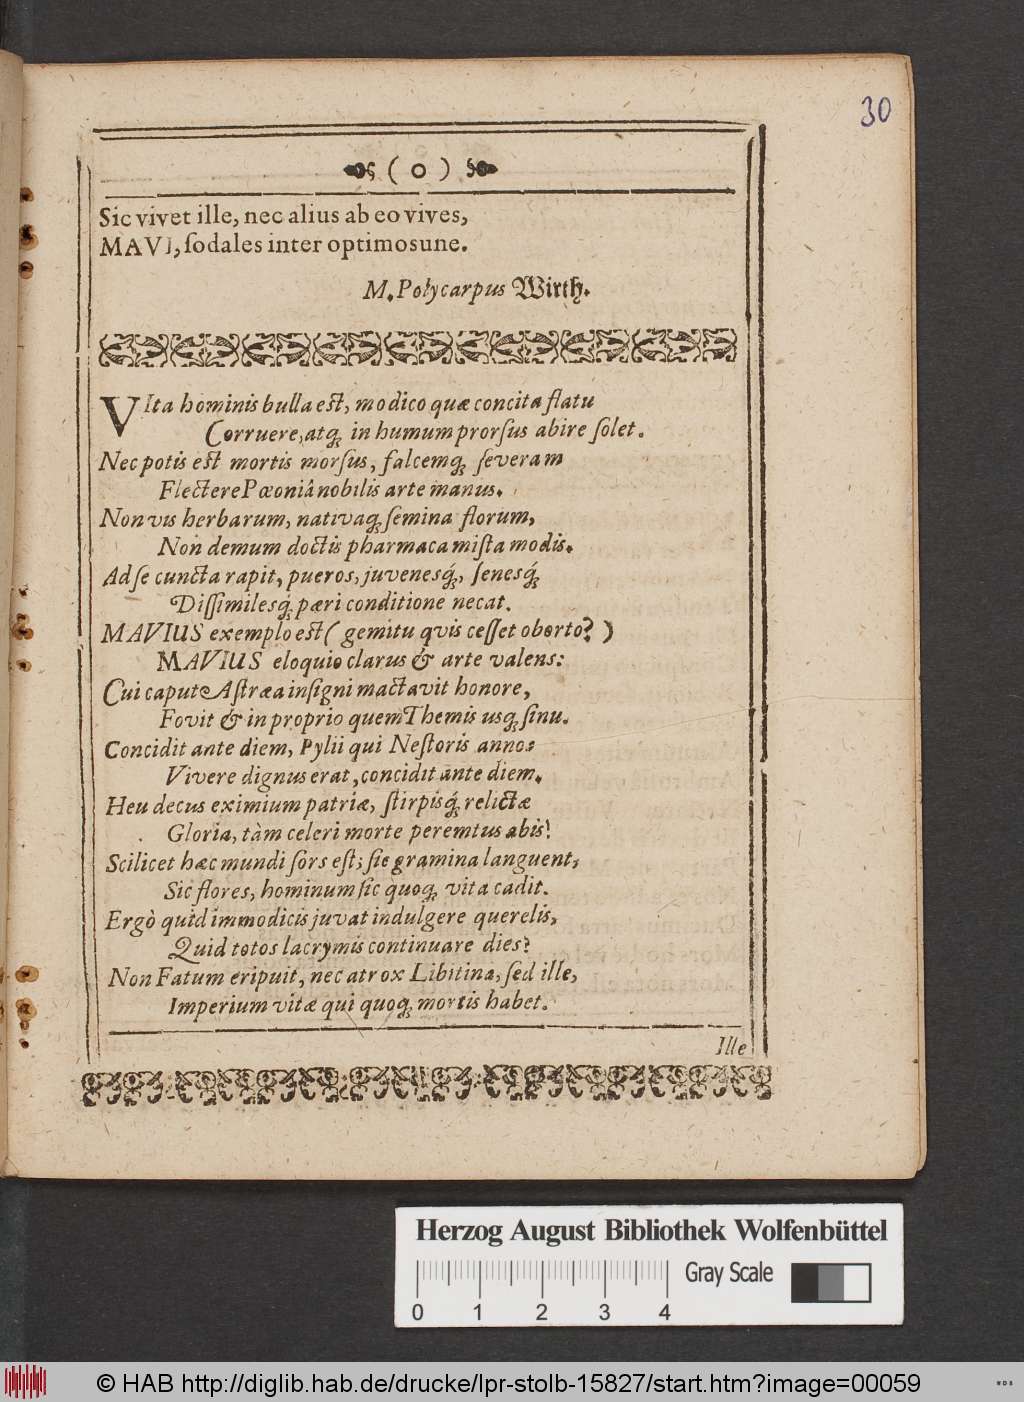 30
( o )
Sic vivet ille, nec alius ab eo vives,
MAVI, ſodales inter optimosune.
M. Polycarpus Wirth.
VIta hominis bulla est, modico quæ concita flatu
Corruere, atq; in humum prorſus abire ſolet.
Nec potis est mortis morſus, falcemq; ſeveram
Flectere Pœoniâ nobilis arte manus.
Non vis herbarum, nativaq; ſemina florum,
Non demum doctis pharmaca miſta modis.
Ad ſe cuncta rapit, pueros, juvenesq́;, ſenesq́;
Diſſimilesq́; pæri conditione necat.
MAVIUS exemplo est ( gemitu qvis ceſſet oborto? )
MAVIUS eloquio clarus & arte valens:
Cui caput Aſtræa inſigni mactavit honore,
Fovit & in proprio quem Themis usq; ſinu.
Concidit ante diem, Pylii qui Neſtoris annos
Vivere dignus erat, concidit ante diem.
Heu decus eximium patriæ, ſtirpisq́; relictæ
Gloria, tàm celeri morte peremtus abis!
Scilicet hæc mundi ſors eſt; ſic gramina languent,
Sic flores, hominum ſic quoq; vita cadit.
Ergò quid immodicis juvat indulgere querelis,
Quid totos lacrymis continuare dies?
Non Fatum eripuit, nec atrox Libitina, ſed ille,
Imperium vitæ qui quoq; mortis habet.
Ille
Herzog August Bibliothek Wolfenbüttel
Gray Scale
0 1 2 3 4
© HAB http://diglib.hab.de/drucke/lpr-stolb-15827/start.htm?image=00059